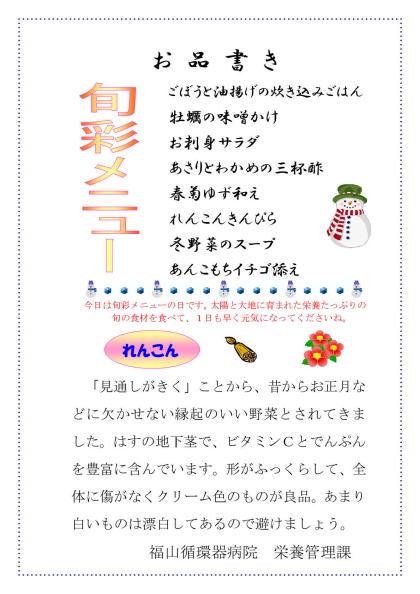 お品書き
旬彩メニュー
ごぼうと油揚げの炊き込みごはん
牡蠣の味噌かけ
お刺身サラダ
あさりとわかめの三杯酢
春菊ゆず和え
れんこんきんぴら
冬野菜のスープ
あんこもちイチゴ添え
今日は旬彩メニューの日です。太陽と大地に育まれた栄養たっぷりの
旬の食材を食べて、１日も早く元気になってくださいね。
れんこん
「見通しがきく」ことから、昔からお正月な
どに欠かせない縁起のいい野菜とされてきま
した。はすの地下茎で、ビタミンＣとでんぷん
を豊富に含んでいます。形がふっくらして、全
体に傷がなくクリーム色のものが良品。あまり
白いものは漂白してあるので避けましょう。
福山循環器病院　栄養管理課